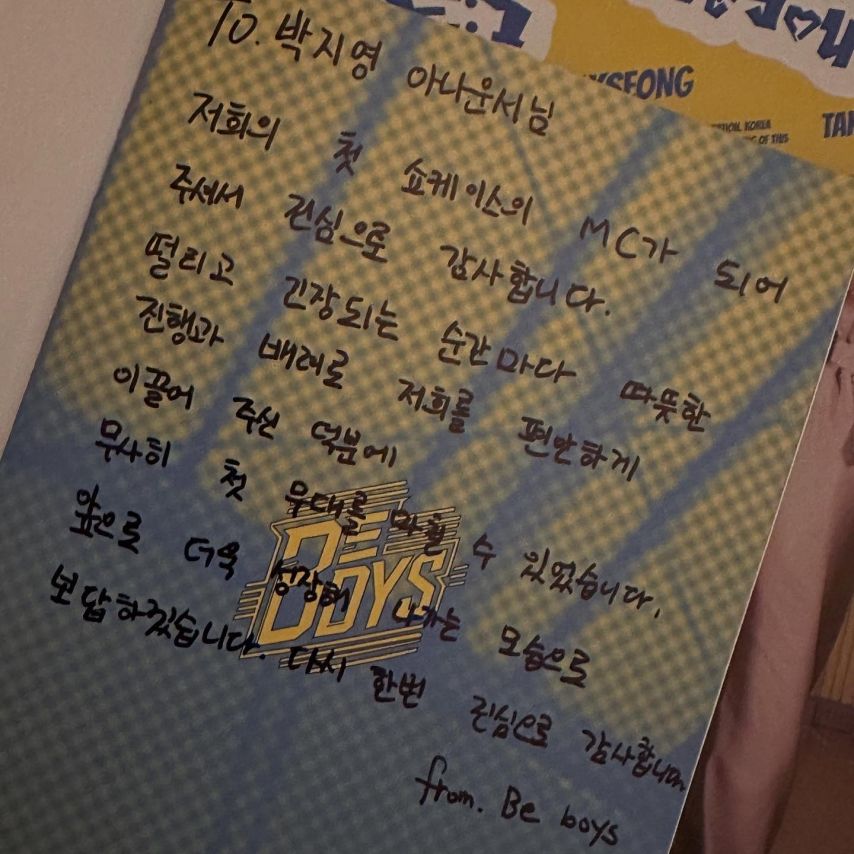 To. 박지영 아나운서님
저희의 첫 쇼케이스의 MC가 되어
주셔서 진심으로 감사합니다.
떨리고 긴장되는 순간마다 따뜻한
진행과 배려로 저희를 편안하게
이끌어 주신 덕분에
무사히 첫 무대를 마칠 수 있었습니다.
앞으로 더욱 성장해 나가는 모습으로
보답하겠습니다. 다시 한번 진심으로 감사합니다
from. Be boys
BE
BOYS
YSEONG
TION, KOREA
NG OF THIS
TAK